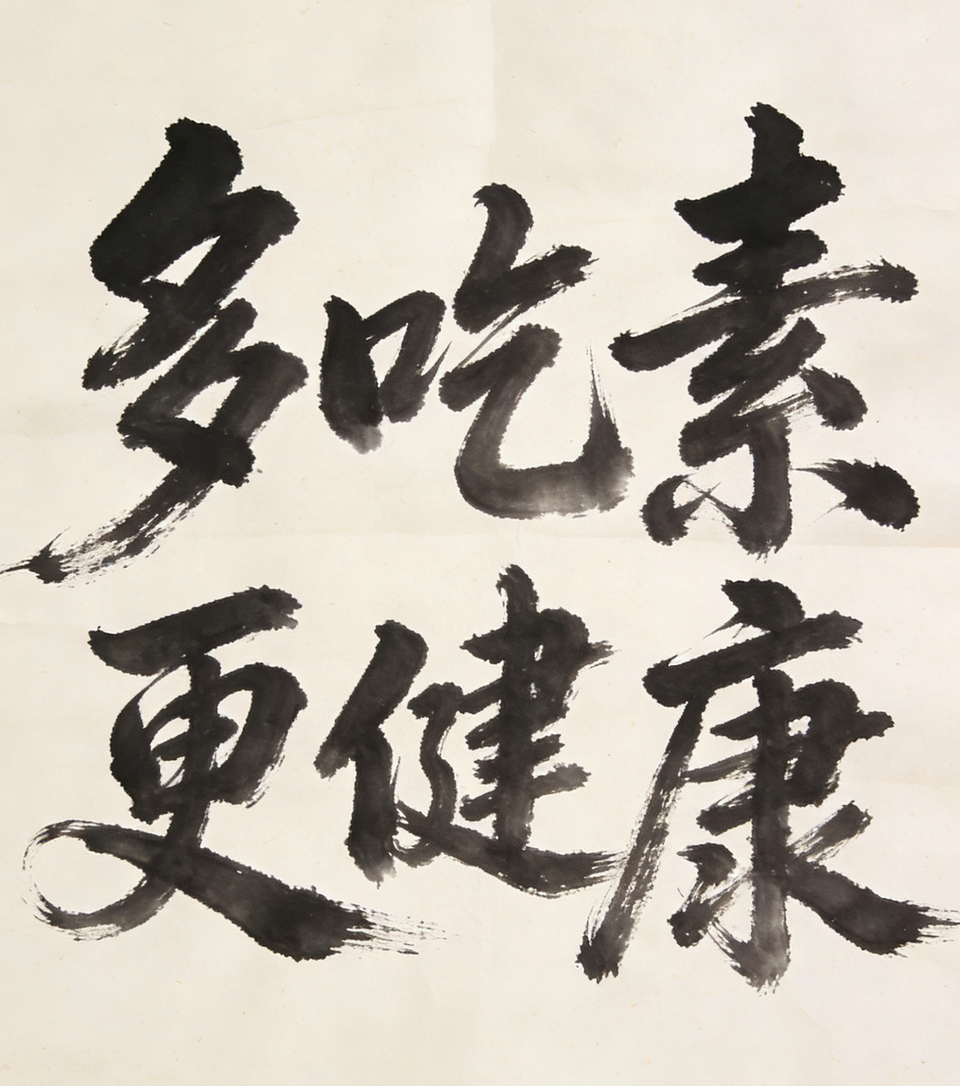 多吃素
更健康